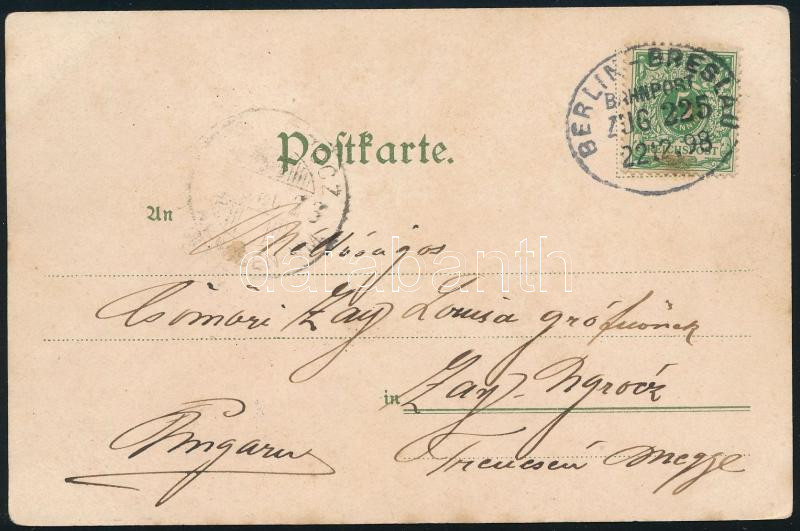 BERLIN - BRESLAU
BAHNPOST
ZUG 225
22 12 98
Postkarte.
An Méltóságos
Csömöri Zay Louisa grófnőnek
in Zay-Ugrócz
Ungarn Trencsén megye
darabanth